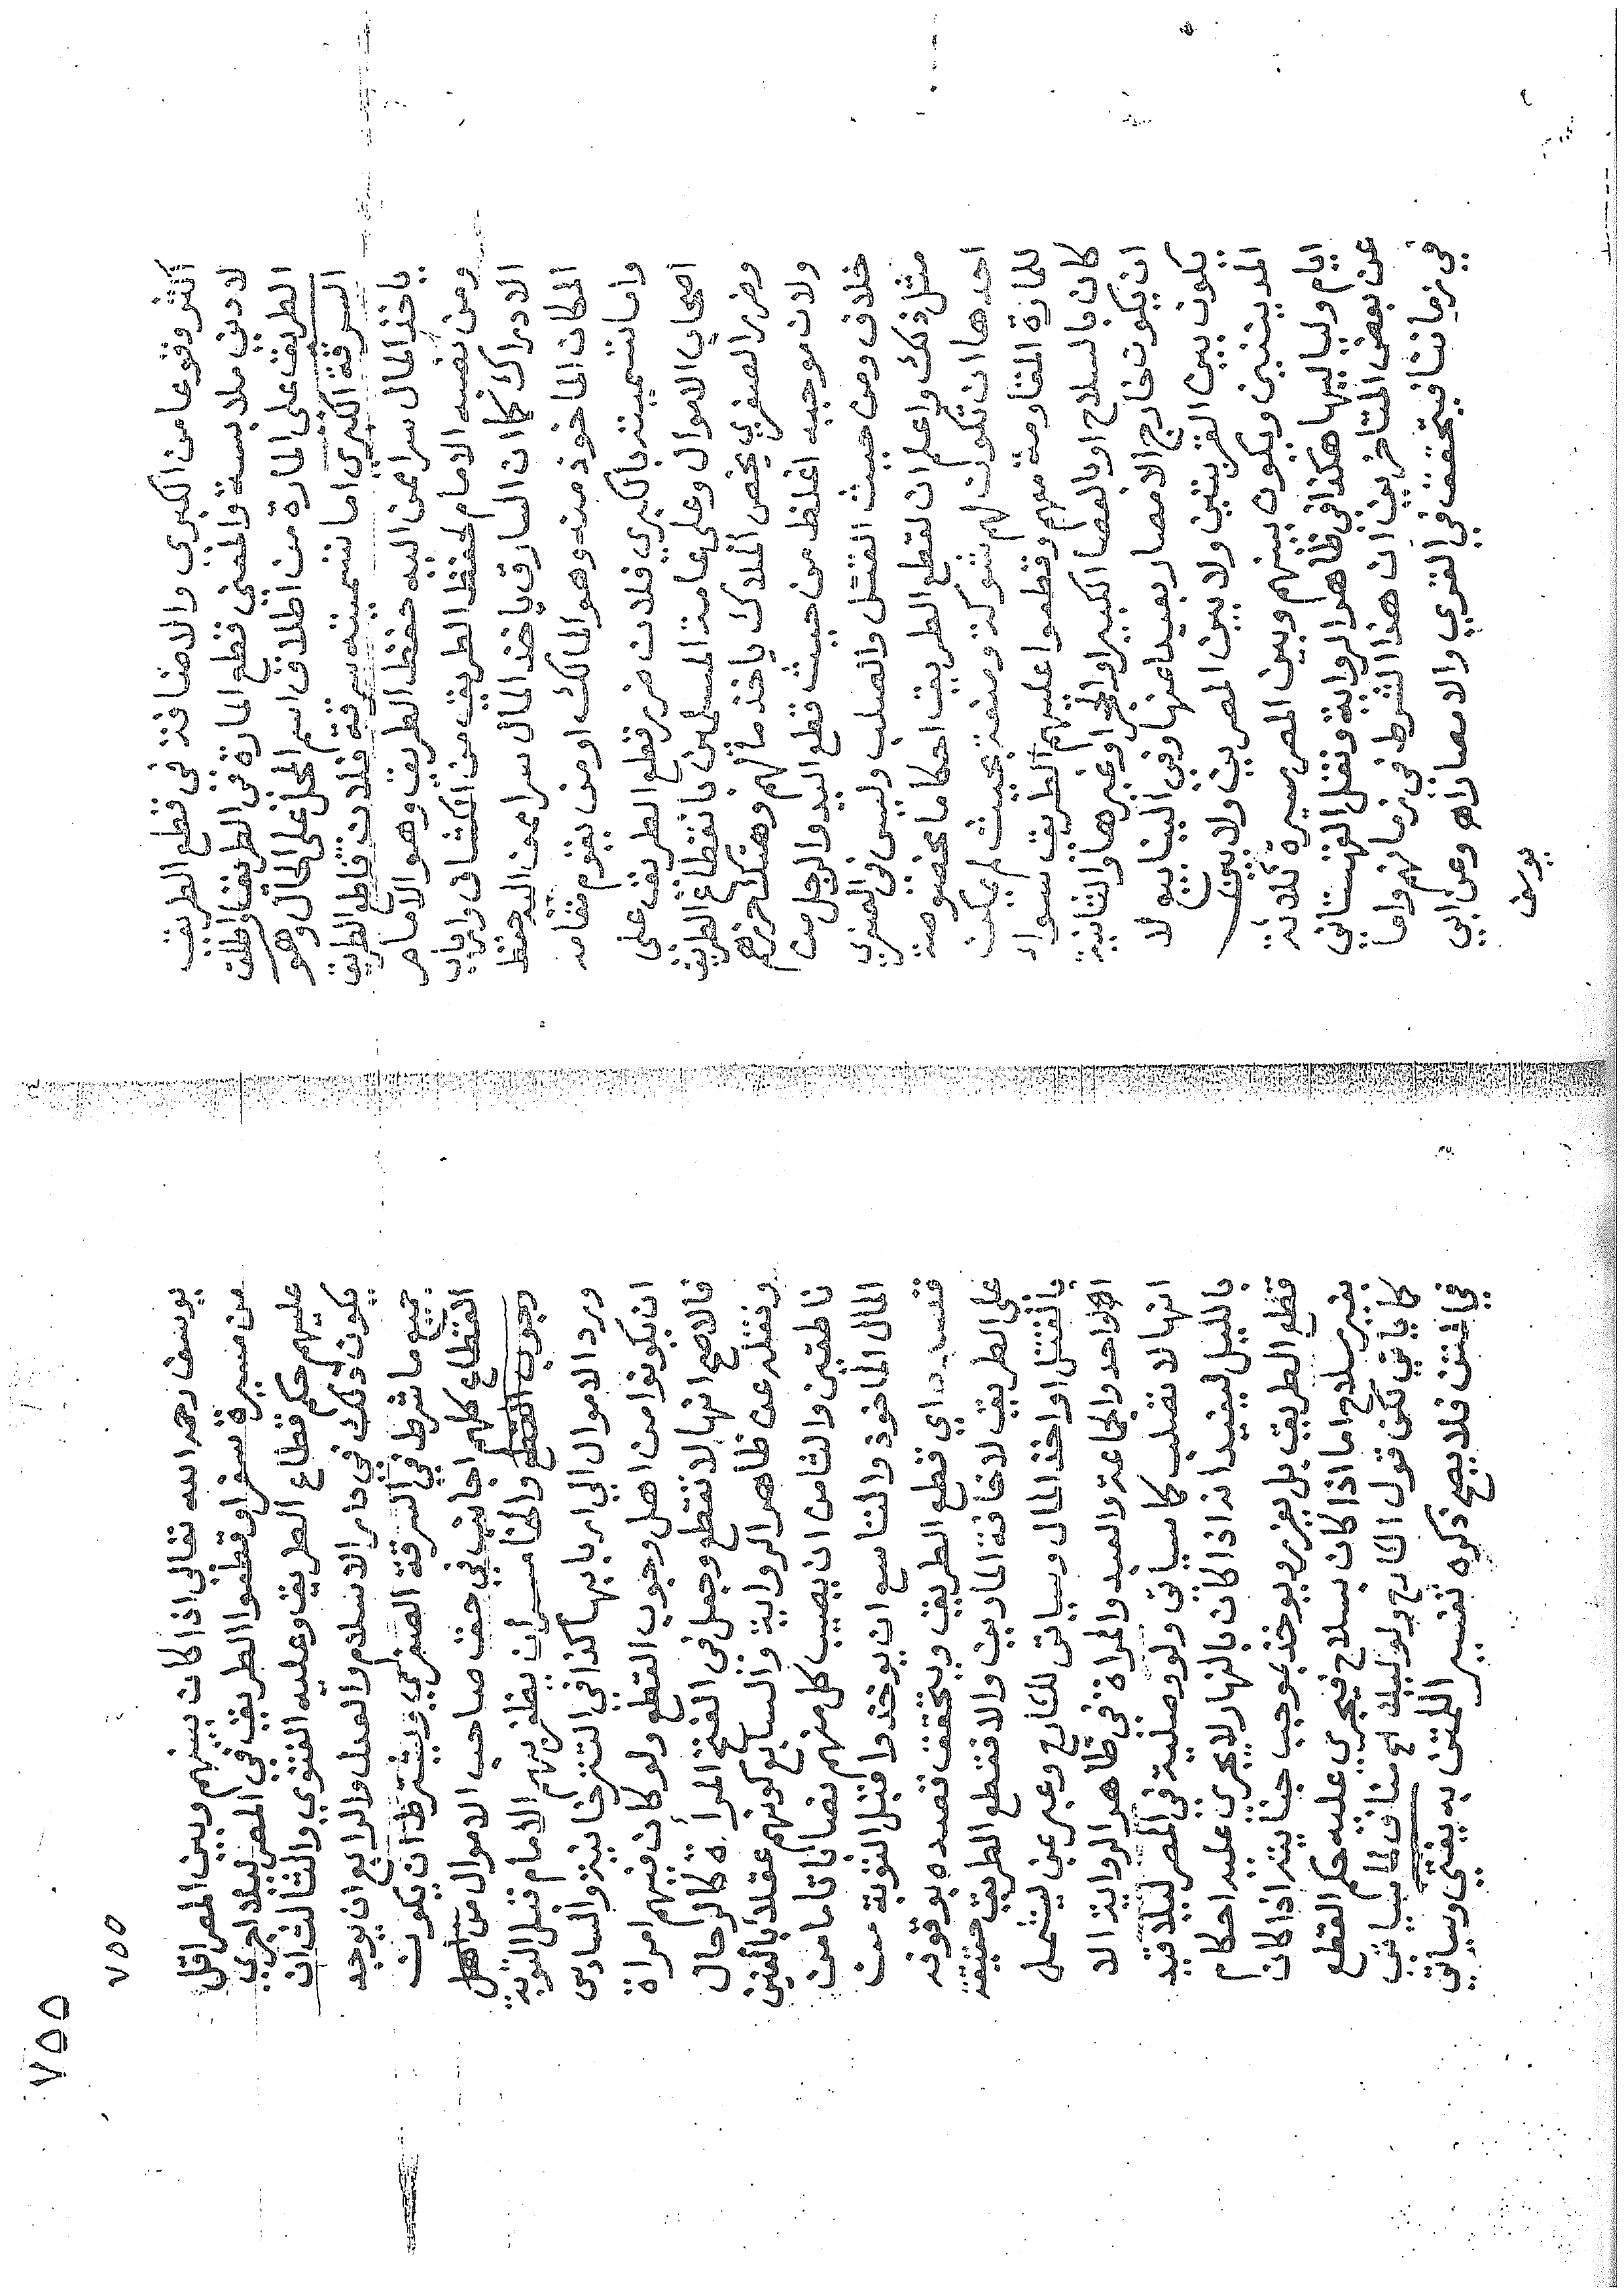 اكثر وقوعا من الكبرى والاضافة في قطع الطريق
لادنى ملابسة والمعنى قطع المارة في الطريق او اطلق
الطريق على المارة من اطلاق اسم المحل على الحال وهو
السرقة الكبرى اما تسميته سرقة فلان قاطع الطريق
ياخذ المال سرا عن اليه حفظ الطريق وهو الامام
ومن نصبه الامام لحفظ الطريق من الكشاف وارباب
الادراك كما ان السارق ياخذ المال سرا عمن اليه حفظ
المكان الماخوذ منه وهو المالك او من يقوم مقامه
واما تسميته بالكبرى فلان ضرر قطع الطريق على
اصحاب الاموال وعلى عامة المسلمين بانقطاع الطريق
وضرر الصغرى يخص الملاك ياخذ مالهم وهتك حرزهم
ولان موجبه اغلظ من حيث قطع اليد والرجل من
خلاف ومن حيث القتل والصلب وليس في الصغرى
مثل ذلك واعلم ان لقطع الطريق احكاما مخصوصة
احدها ان تكون لهم شوكة ومنعة بحيث لم يمكن
للمارة المقاومة معهم وقطعوا عليهم الطريق سواء
كان بالسلاح او بالعصا الكبير او الحجر او غيرها والثانية
ان يكون خارج الامصار بعيدا عنها وفي الينابيع لا
يكون بين القريتين ولا بين المصرين ولا بين
المدينتين ويكون بينهم وبين المصر مسيرة ثلاثة
ايام ولياليها هكذا في ظاهر الرواية ونقل القهستاني
عن بعض المتاخرين ان هذا الشرط في زمانهم واما
في زماننا فيتحقق في القرى والامصار اه وعن ابي
يوسف
٧٥٥
٧٥٥
يوسف رحمه الله تعالى اذا كان بينهم وبين المصر اقل
من مسيرة سفر او قطعوا الطريق في المصر ليلا اجري
عليهم حكم قطاع الطريق وعليه الفتوى والثالث ان
يكون ذلك في دار الاسلام والعدل والرابع ان يوجد
جميع ما شرط في السرقة الصغرى ويشترط ان يكون
القطاع كلهم اجانب في حق صاحب الاموال من اهل
وجوب القطع والخامس ان يظفر بهم الامام قبل التوبة
ورد الاموال الى اربابها كذا في التترخانية والسادس
ان يكونوا من اهل وجوب القطع ولو كان فيهم امراة
فالاصح انها لا تقطع وجعل في الفتح المراة كالرجال
ونقله عن ظاهر الرواية والسابع كونهم عقلا بالغين
ناطقين والثامن ان يصيب كل منهم نصابا تاما من
المال الماخوذ والتاسع ان يوخذوا قبل التوبة من
قصده اي قطع الطريق ويتحقق قصده بوقوفه
على الطريق لاخافة المارين والا فقطع الطريق حقيقة
بالقتل او اخذ المال وسياتي للشارح وعبر بمن ليشمل
الواحد والجماعة والعبد والمراة في ظاهر الرواية الا
انها لا تصلب كما سياتي ولو وصلية في المصر ليلا قيد
بالليل ليفيد انه اذا كان بالنهار لا يجري عليه احكام
قطع الطريق بل يعزر ويوخذ بموجب جنايته اذا كان
بغير سلاح اما اذا كان بسلاح فيجري عليه حكم القطع
كما ياتي لكن قول الشارح ولو ليلا مناف لما سياتي
في المتن فلا يصح ذكره تفسير المتن به يفتى وسياتي